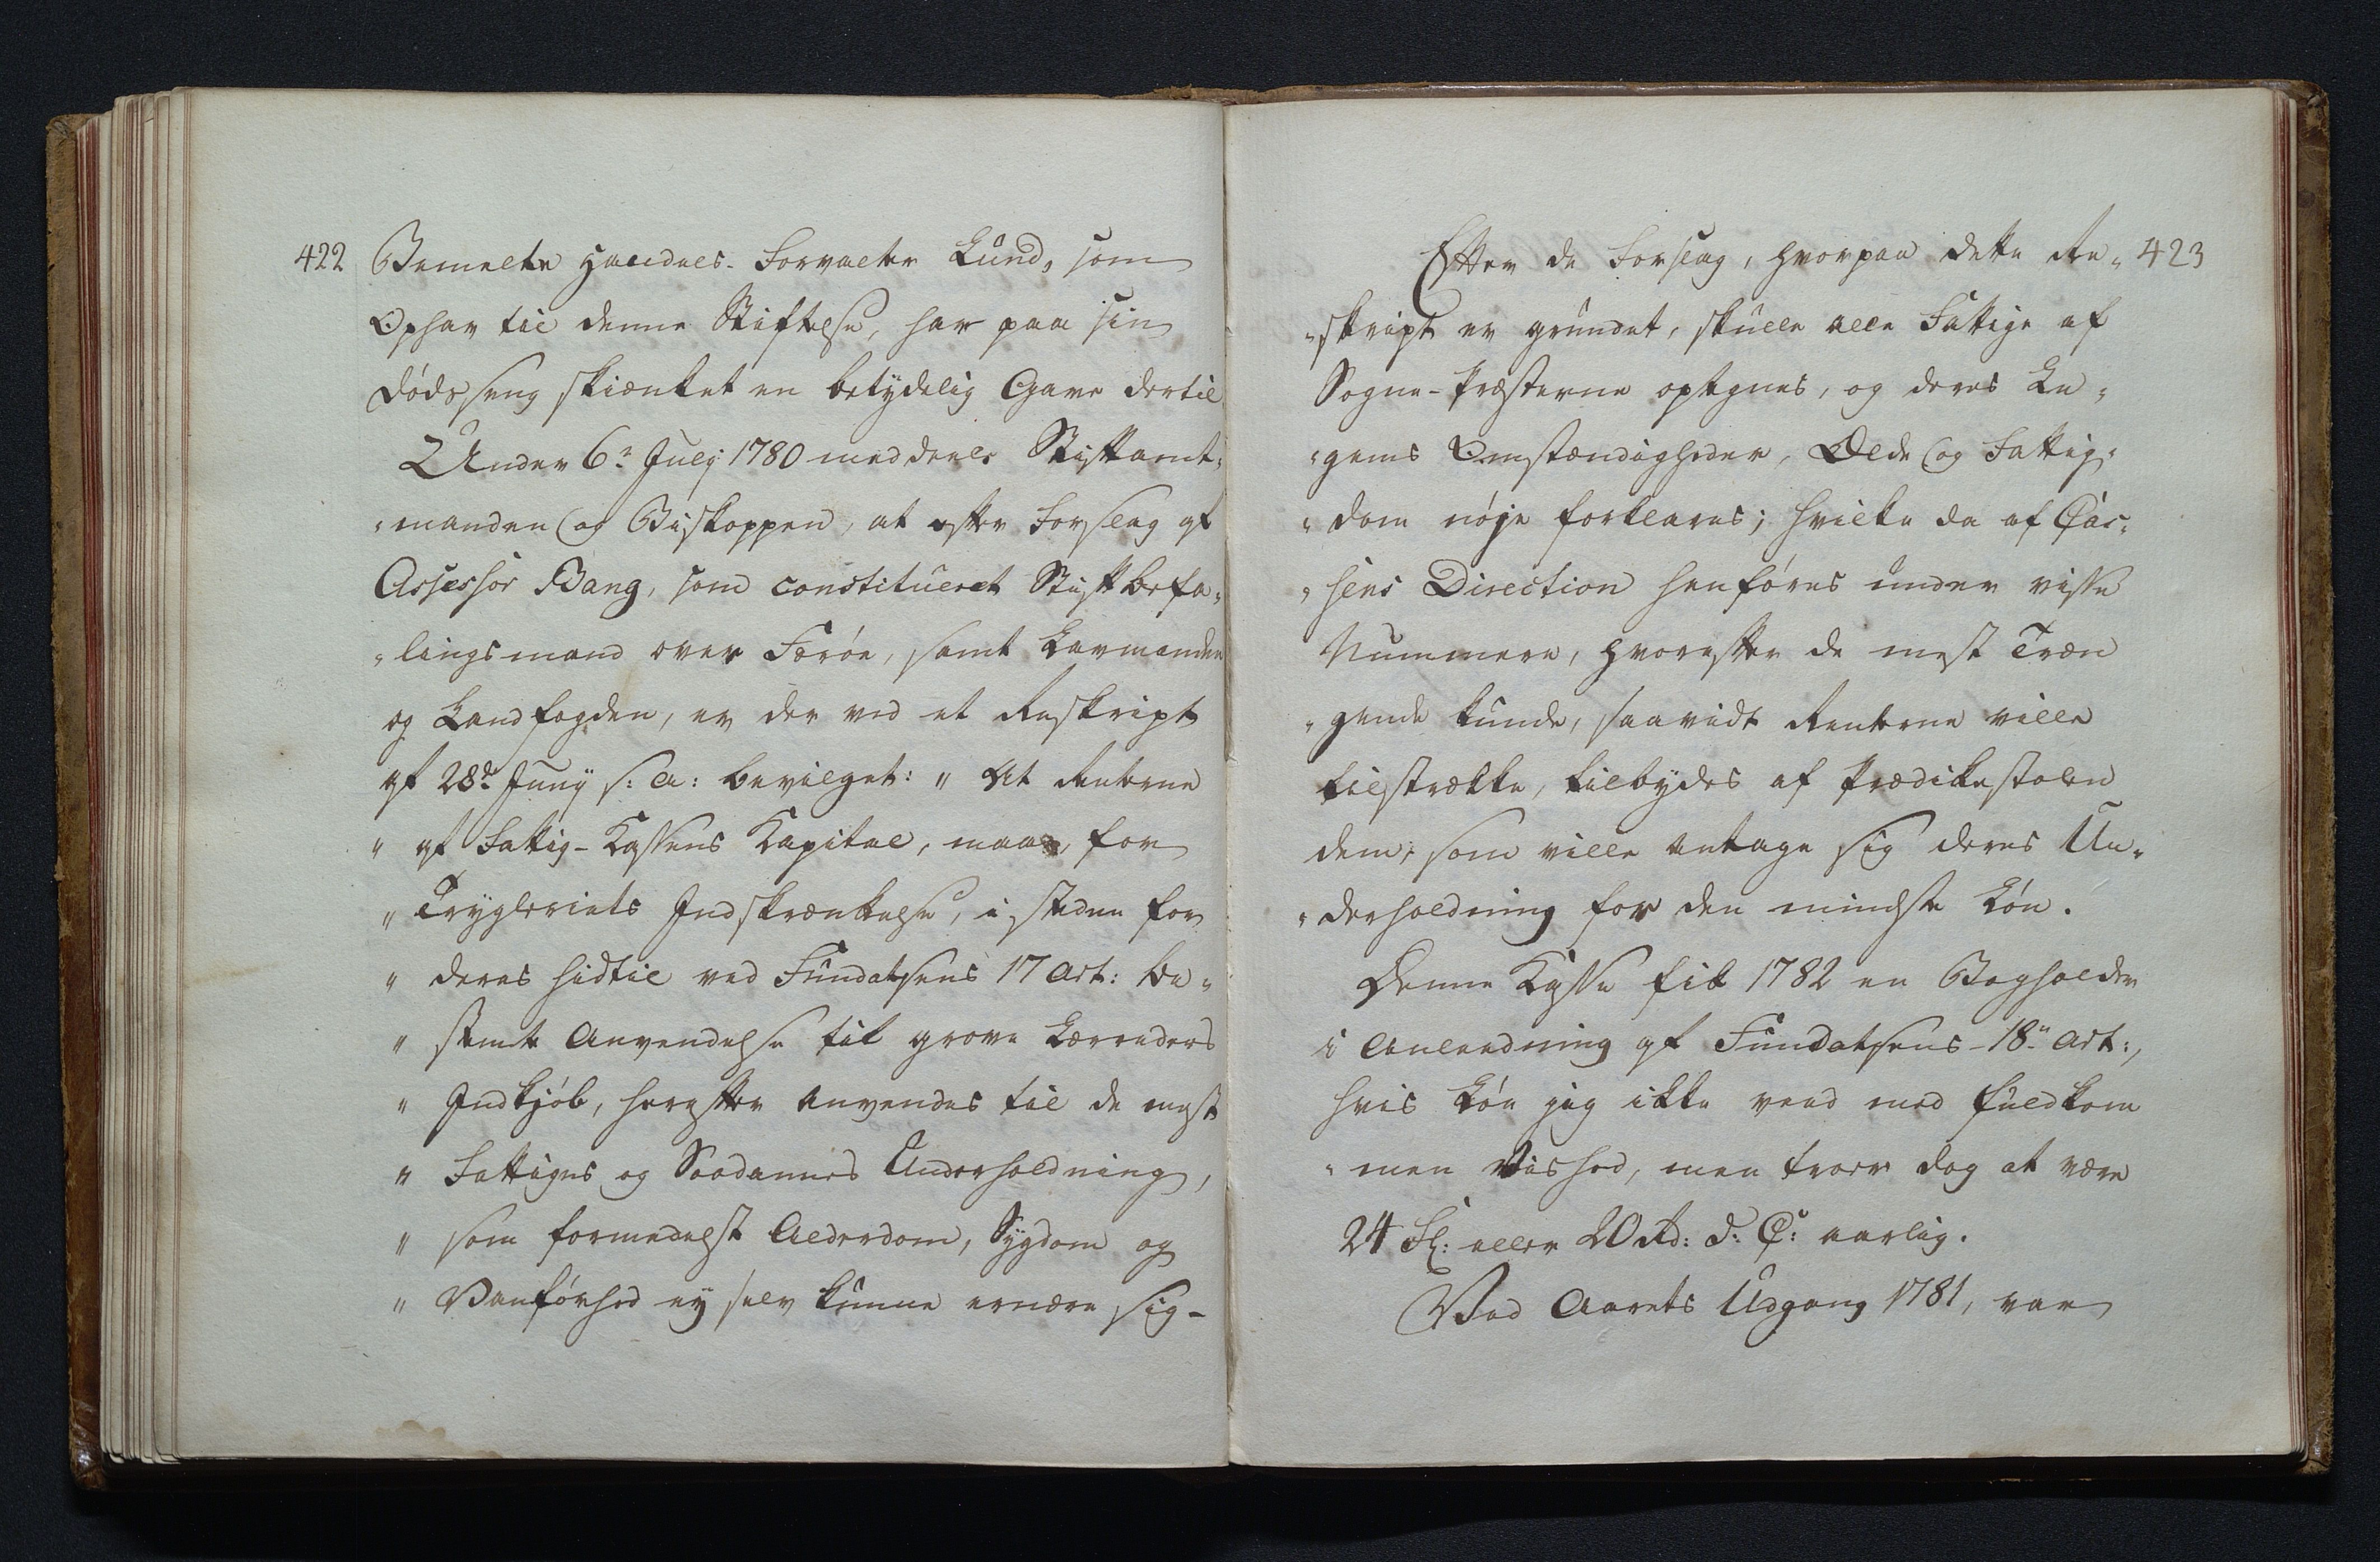 422 Bemelte Handels-Forvalter Lund, som
Ophav til denne Stiftelse, har paa sin
Dødsseng skiænket en betydelig Gave dertil
Under 6e July 1780 meddeels Stiftamt-
-manden og Biskoppen, at efter Forslag af
Assessor Bang, som constitueret Stiftbefa-
-lingsmand over Færöe, samt Lavmanden
og Landfogden, er der ved et Reskript
af 28de Juny s: a: bevilget: " At Renterne
" af Fattig-Kassens Kapital, maae, for
" Trygleriets Indskrænkelse, i steden for
" deres hidtil ved Fundatsens 17 Art: be-
" stemte Anvendelse til grove Lærreders
" Indkjøb, herefter anvendes til de mest
" Fattiges og Saadannes Underholdning,
" som formedelst Alderdom, Sygdom og
" Vanførhed ey selv kunne ernære sig -
Efter de Forslag, hvorpaa dette Re- 423
-skript er grundet, skulle alle Fattige af
Sogne-Præsterne optegnes, og deres Le-
-gems Omstændigheder, Ælde og Fattig-
-dom nøje forklares; hvilke da af Cas-
-sens Direction henføres under visse
Nummere, hvorefter de mest Træn
-gende kunde, saavidt Renterne ville
tilstrække, tilbydes af Prædikestolen
dem, som ville antage sig deres Un-
-derholdning for den mindste Løn.
Denne Kasse fik 1782 en Bogholder
i Anledning af Fundatsens 18n Art:,
hvis Løn jeg ikke veed med fuldkom
-men Vished, men troer dog at være
24 Sl: eller 20 Rd: d: C: aarlig.
Ved Aarets Udgang 1781, var